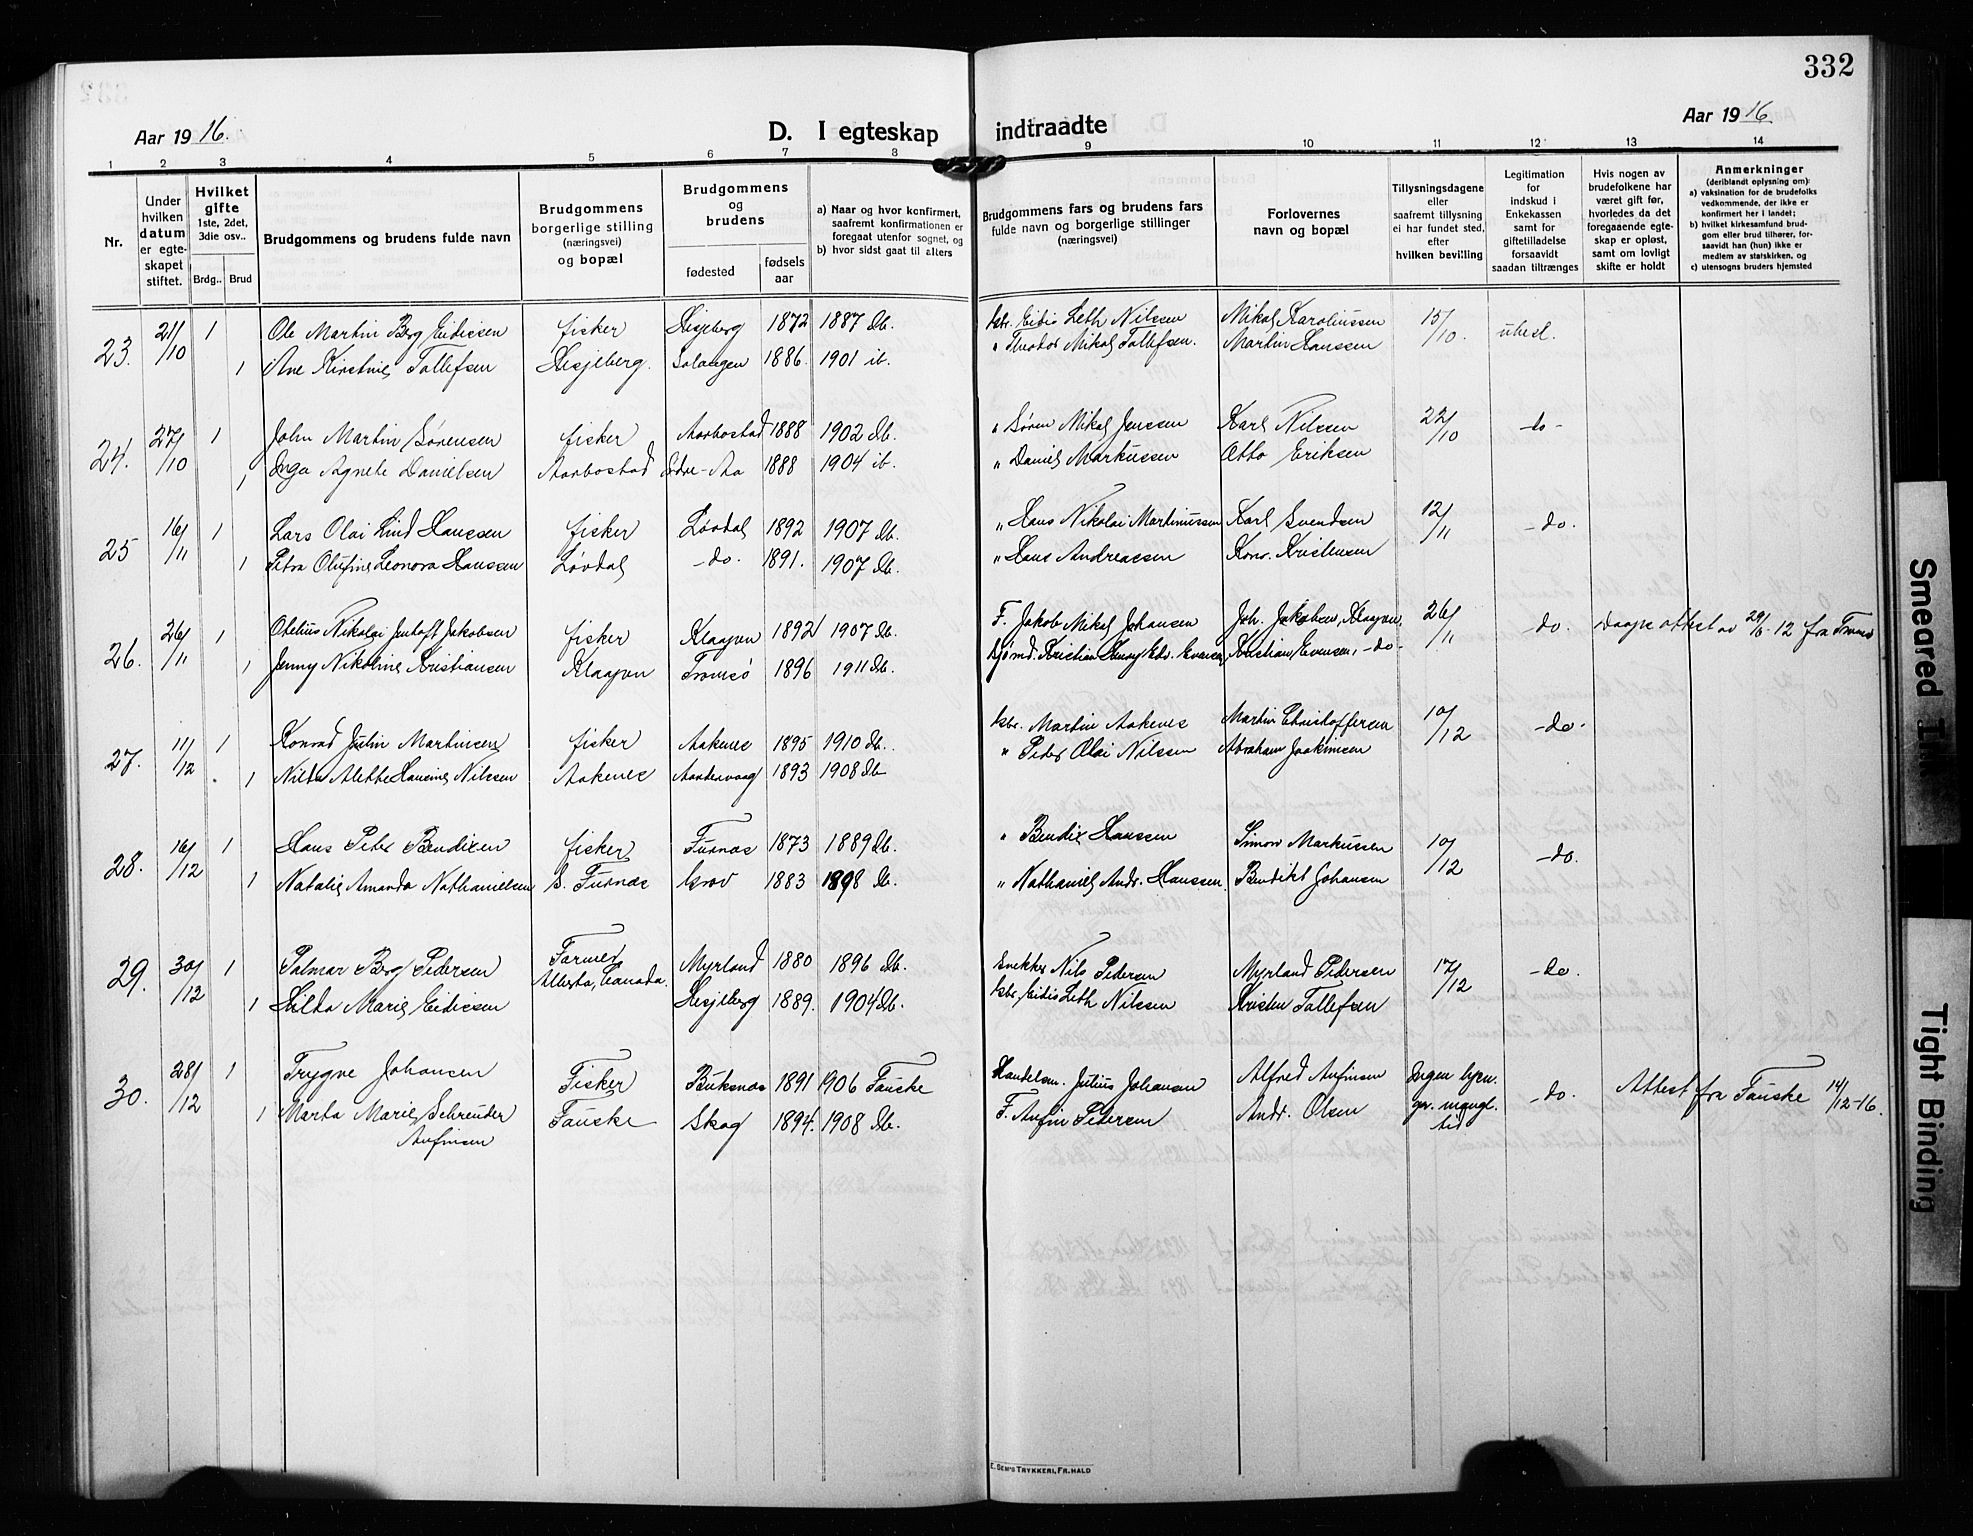 332
Aar 1916.
D. I egteskap indtraadte
Aar 1916
1 2 3 4 5 6 7 8 9 10 11 12 13 14
Nr.
Under hvilken datum er egteskapet stiftet.
Hvilket gifte 1ste, 2det, 3die osv..
Brdg.. Brud
Brudgommens og brudens fulde navn
Brudgommens borgerlige stilling (næringsvei) og bopæl
Brudgommens og brudens
fødested
fødsels aar
a) Naar og hvor konfirmert, saafremt konfirmationen er foregaat utenfor sognet, og
b) hvor sidst gaat til alters
Brudgommens fars og brudens fars fulde navn og borgerlige stillinger (næringsvei)
Forlovernes navn og bopæl
Tillysningsdagene eller saafremt tillysning ei har fundet sted, efter hvilken bevilling
Legitimation for indskud i Enkekassen samt for giftetilladelse forsaavidt saadan tiltrænges
Hvis nogen av brudefolkene har været gift før, hvorledes da det foregaaende egteskap er opløst, samt om lovligt skifte er holdt
Anmerkninger (deriblandt oplysning om):
a) vaksination for de brudefolks vedkommende, der ikke er konfirmert her i landet;
b) hvilket kirkesamfund brudgom eller brud tilhører, forsaavidt han (hun) ikke er medlem av statskirken, og
c) utensogns bruders hjemsted
23. 21/10 1 Ole Martin Berg Eidissen fisker Hesjeberg 1872 1887 Ib. Gbr. Eidis Leth Nilssen Mikal Karoliussen 15/10. ubest.
1 Ane Kirstine Tollefsen Hesjeberg. Salangen 1886. 1901 ib. " Theodor Mikal Tollefsen. Martin Hanssen
24. 27/10 1 John Martin Sørensen fisker Aarbostad 1888 1902 Ib. " Søren Mikal Jenssen Karl Nilssen 22/10 -do-
1 Inga Agnete Danielsen Aarbostad Indre-Aa 1888 1904 ib. " Daniel Markussen Otto Eriksen
25 16/11 1 Lars Olai Lind Hanssen fisker Løvdal 1892 1907 Ib. " Hans Nikolai Martinussen Karl Svendsen 12/11 -do.
1 Petra Olufine Leonora Hanssen Løvdal -do. 1891. 1907 Ib. " Hans Andreassen Konr. Kristensen
26. 26/11 1 Otelius Nikolai Jentoft Jakobsen fisker Klaaven 1892 1907 Ib. F. Jakob Mikal Johansen Joh. Jakobsen, Klaaven 26/11 -do. Daapsattest av 29/6-12 fra Tromsø
1 Jenny Nikoline Kristiansen Klaaven Tromsø 1896 1911 Ib. Sjømd. Kristian Henry Edv. Evensen Kristian Evensen, -do-
27. 11/12 1 Konrad Julin Martinsen fisker Aakenes 1895 1910 Ib. Gbr. Martin Aakenes Martin Christoffersen 10/12 -do-
1 Nilda Alette Hansine Nilssen Aakenes 1893 1908 Ib " Peder Olai Nilssen Abraham Joakimsen
28. 16/12 1 Hans Peter Bendixen fisker Furnæs 1873 1889 Ib. " Bendix Hanssen Simon Markussen 10/12 -do.
1 Natalie Amanda Nathanielsen S. Furnæs Grov 1883 1898 Ib. " Nathaniel Andr. Hanssen Bendikt Johansen
29. 30/12 1 Palmar Berg Pedersen Farmer Alberta, Canada. Myrland 1880 1896 Ib. Snekker Nils Pedersen Myrland Pedersen 17/12 -do.
1 Hilda Marie Eidissen Hesjeberg 1889. 1904 Ib. Gbr. Eidis Leth Nilssen Kristen Tollefsen
30. 28/12 1 Trygve Johansen Fisker Buksnæs 1891 1906 Fauske Handelsm. Julius Johansen Alfred Anfinsen Ingen lysn. gr. mangl. tid -do. Attest fra Fauske 14/12-16.
1 Marta Marie Schreuder Anfinsen Fauske Skog 1894. 1908 Ib. F. Anfin Pedersen Andr. Olsen
E. SEM'S TRYKKERI, FR.HALD
Smeared Ink
Tight Binding